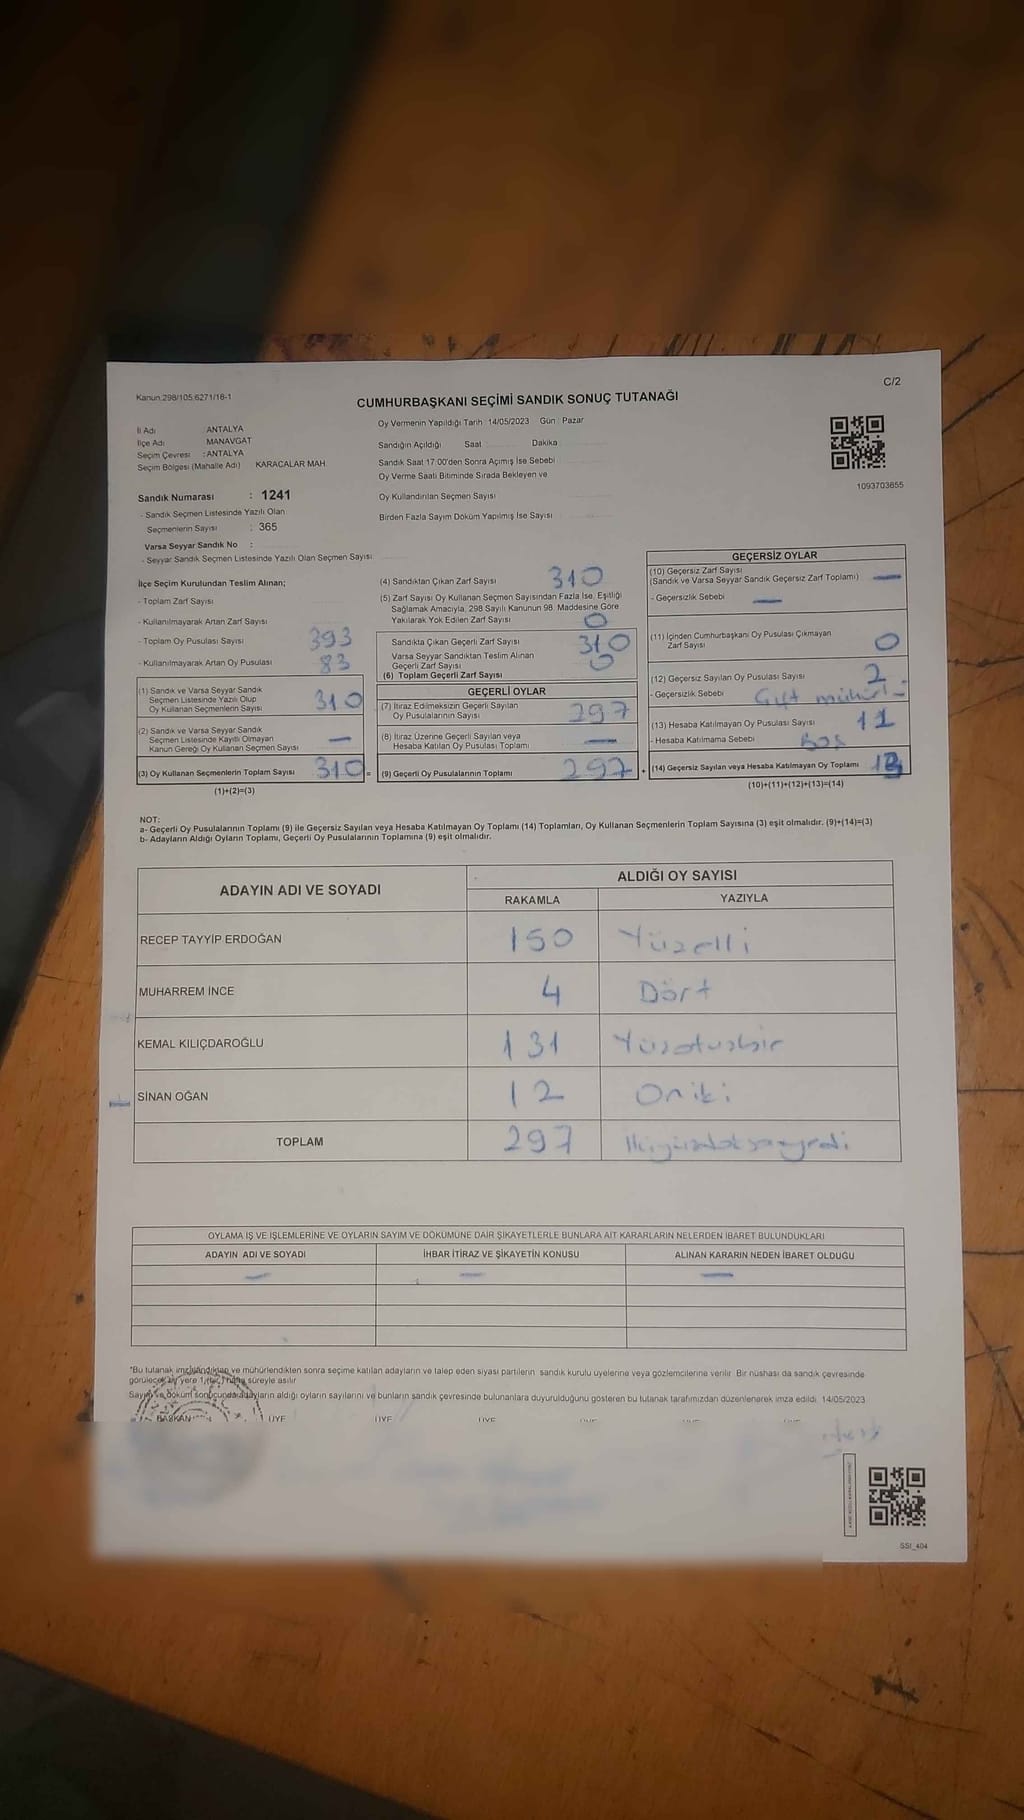 C/2
Kanun.298/105.6271/16-1
CUMHURBAŞKANI SEÇİMİ SANDIK SONUÇ TUTANAĞI
İl Adı : ANTALYA
İlçe Adı MANAVGAT
Seçim Çevresi : ANTALYA
Seçim Bölgesi (Mahalle Adı) KARACALAR MAH
Sandık Numarası : 1241
- Sandık Seçmen Listesinde Yazılı Olan
Seçmenlerin Sayısı : 365
Varsa Seyyar Sandık No :
- Seyyar Sandık Seçmen Listesinde Yazılı Olan Seçmen Sayısı
Oy Vermenin Yapıldığı Tarih 14/05/2023 Gün : Pazar
Sandığın Açıldığı Saat Dakika
Sandık Saat 17:00'den Sonra Açımış İse Sebebi
Oy Verme Saati Bitiminde Sırada Bekleyen ve
Oy Kullandırılan Seçmen Sayısı
Birden Fazla Sayım Döküm Yapılmış İse Sayısı
1093703655
İlçe Seçim Kurulundan Teslim Alınan;
- Toplam Zarf Sayısı
- Kullanılmayarak Artan Zarf Sayısı
- Toplam Oy Pusulası Sayısı 393
- Kullanılmayarak Artan Oy Pusulası 83
(1) Sandık ve Varsa Seyyar Sandık
Seçmen Listesinde Yazılı Olup
Oy Kullanan Seçmenlerin Sayısı 310
(2) Sandık ve Varsa Seyyar Sandık
Seçmen Listesinde Kayıtlı Olmayan
Kanun Gereği Oy Kullanan Seçmen Sayısı —
(3) Oy Kullanan Seçmenlerin Toplam Sayısı 310 =
(1)+(2)=(3)
(4) Sandıktan Çıkan Zarf Sayısı 310
(5) Zarf Sayısı Oy Kullanan Seçmen Sayısından Fazla İse, Eşitliği
Sağlamak Amacıyla, 298 Sayılı Kanunun 98. Maddesine Göre
Yakılarak Yok Edilen Zarf Sayısı 0
Sandıkta Çıkan Geçerli Zarf Sayısı 310
Varsa Seyyar Sandıktan Teslim Alınan
Geçerli Zarf Sayısı 0
(6) Toplam Geçerli Zarf Sayısı
GEÇERLİ OYLAR
(7) İtiraz Edilmeksizin Geçerli Sayılan
Oy Pusulalarının Sayısı 297
(8) İtiraz Üzerine Geçerli Sayılan veya
Hesaba Katılan Oy Pusulası Toplamı —
(9) Geçerli Oy Pusulalarının Toplamı 297 +
GEÇERSİZ OYLAR
(10) Geçersiz Zarf Sayısı
(Sandık ve Varsa Seyyar Sandık Geçersiz Zarf Toplamı) —
- Geçersizlik Sebebi —
(11) İçinden Cumhurbaşkanı Oy Pusulası Çıkmayan
Zarf Sayısı 0
(12) Geçersiz Sayılan Oy Pusulası Sayısı 2
- Geçersizlik Sebebi Çift
(13) Hesaba Katılmayan Oy Pusulası Sayısı 11
- Hesaba Katılmama Sebebi Boş
(14) Geçersiz Sayılan veya Hesaba Katılmayan Oy Toplamı 13
(10)+(11)+(12)+(13)=(14)
NOT:
a- Geçerli Oy Pusulalarının Toplamı (9) ile Geçersiz Sayılan veya Hesaba Katılmayan Oy Toplamı (14) Toplamları, Oy Kullanan Seçmenlerin Toplam Sayısına (3) eşit olmalıdır. (9)+(14)=(3)
b- Adayların Aldığı Oyların Toplamı, Geçerli Oy Pusulalarının Toplamına (9) eşit olmalıdır.
ADAYIN ADI VE SOYADI ALDIĞI OY SAYISI
RAKAMLA YAZIYLA
RECEP TAYYİP ERDOĞAN 150 Yüzelli
MUHARREM İNCE 4 Dört
KEMAL KILIÇDAROĞLU 131 Yüzotuzbir
SİNAN OĞAN 12 Oniki
TOPLAM 297
OYLAMA İŞ VE İŞLEMLERİNE VE OYLARIN SAYIM VE DÖKÜMÜNE DAİR ŞİKAYETLERLE BUNLARA AİT KARARLARIN NELERDEN İBARET BULUNDUKLARI
ADAYIN ADI VE SOYADI İHBAR İTİRAZ VE ŞİKAYETİN KONUSU ALINAN KARARIN NEDEN İBARET OLDUĞU
— — —
*Bu tutanak imzalandıktan ve mühürlendikten sonra seçime katılan adayların ve talep eden siyasi partilerin sandık kurulu üyelerine veya gözlemcilerine verilir. Bir nüshası da sandık çevresinde
görülecek bir yere 1 (bir) hafta süreyle asılır
Sayım ve döküm sonucunda adayların aldığı oyların sayılarını ve bunların sandık çevresinde bulunanlara duyurulduğunu gösteren bu tutanak tarafımızdan düzenlenerek imza edildi. 14/05/2023
BAŞKAN ÜYE ÜYE ÜYE ÜYE ÜYE ÜYE
SSI_404